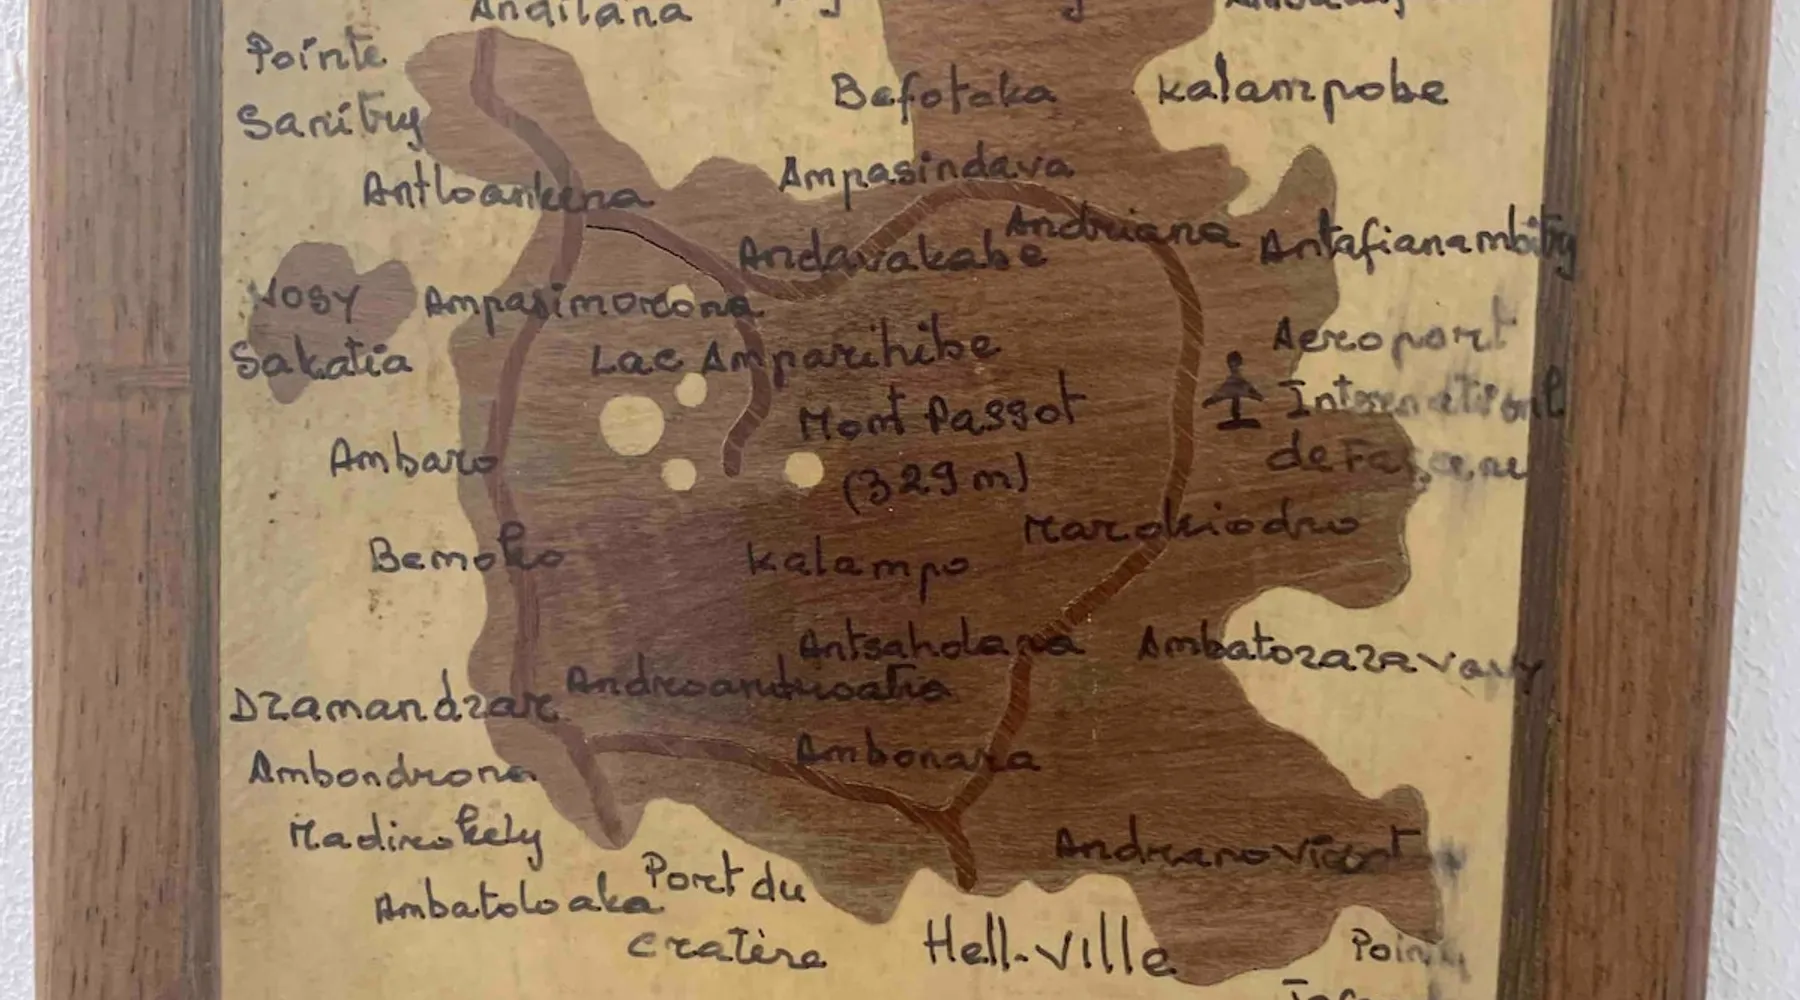 Andilana
Pointe
Sanitry
Befotaka
Kalampobe
Ampasindava
Antloankena
Andriana
Antafianambitry
Andavakabe
Nosy
Sakatia
Ampasimorona
Lac Amparihibe
Aeroport
International
de Fascene
Mont Passot
(329 m)
Ambaro
Marokiodro
Bemoko
Kalampo
Antsaholana
Ambatozazavavy
Androandroatia
Dzamandzar
Ambonara
Ambondrona
Madirokely
Port du
cratère
Ambatoloaka
Hell-Ville